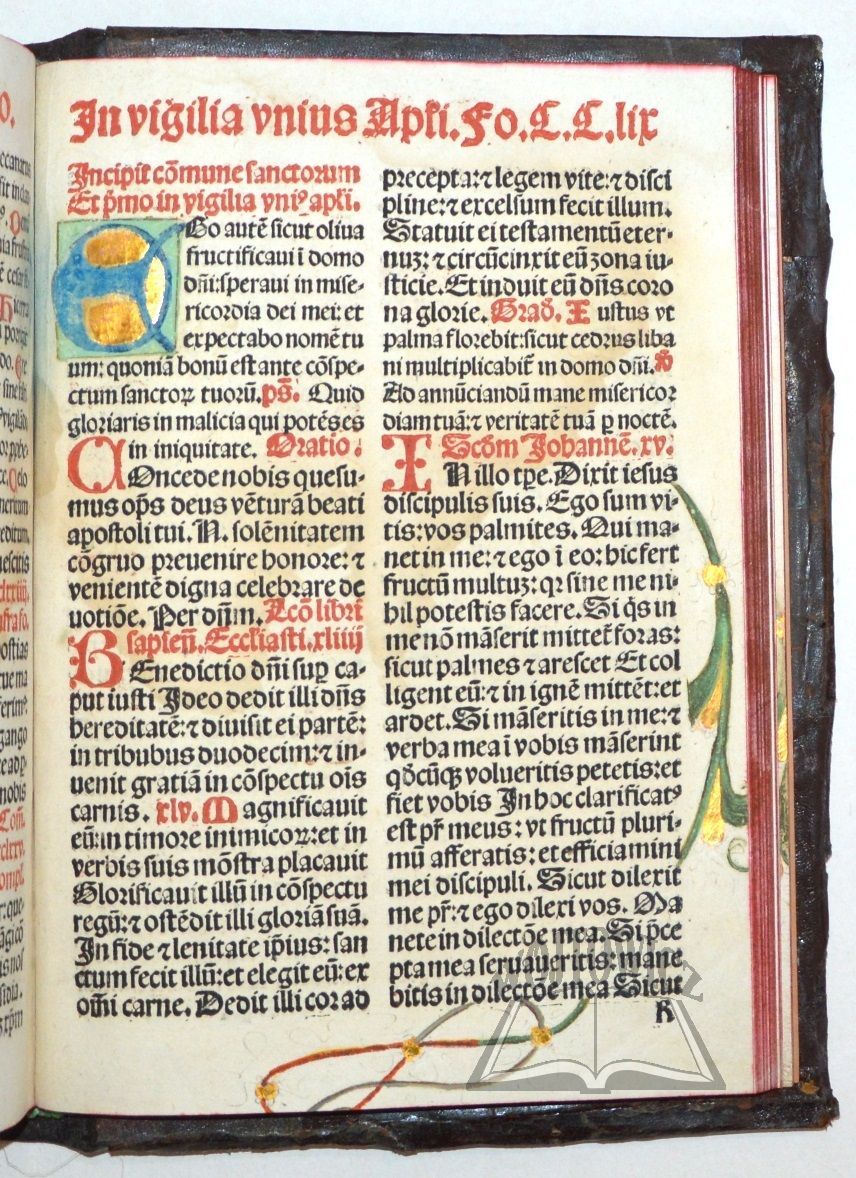 In vigilia vnius Apĺi. Fo. C. C. lix
Incipit cõmune sanctorum
Et p̃mo in vigilia vniꝰ apĺi.
EGo autẽ sicut oliua
fructificaui ĩ domo
dñi: speraui in mise-
ricordia dei mei: et
expectabo nomẽ tu
um: quoniã bonũ est ante cõspe-
ctum sanctoꝝ tuorũ. p̃s. Quid
gloriaris in malicia qui potẽs es
in iniquitate. Oratio.
COncede nobis quesu-
mus op̃s deus vẽturã beati
apostoli tui. N. solẽnitatem
cõgruo preuenire honore: ⁊
venientẽ digna celebrare de
uotiõe. Per dñm. Lcõ libri
sapieñ. Eccĺiasti. xliiij
BEnedictio dñi suꝑ ca-
put iusti Ideo dedit illi dñs
hereditatẽ: ⁊ diuisit ei partẽ:
in tribubus duodecim: ⁊ in-
uenit gratiã in cõspectu oĩs
carnis. xlv. Magnificauit
eũ: in timore inimicoꝝ: et in
verbis suis mõstra placauit
Glorificauit illũ in cõspectu
regũ: ⁊ ostẽdit illi gloriã suã.
In fide ⁊ lenitate ip̃ius: san
ctum fecit illũ: et elegit eũ: ex
om̃i carne. Dedit illi cor ad
precepta: ⁊ legem vite: ⁊ disci
pline: ⁊ excelsum fecit illum.
Statuit ei testamentũ eter-
nuꝫ: ⁊ circũcinxit eũ zona iu-
sticie. Et induit eũ dñs coro
na glorie. Grad̃. Iustus vt
palma florebit: sicut cedrus liba
ni multiplicabit̃ in domo dñi. ꝟ
Ad annũciandũ mane misericor
diam tuã: ⁊ veritatẽ tuã ꝑ noctẽ.
Scd̃m Johannẽ. xv.
IN illo tp̃e. Dixit iesus
discipulis suis. Ego sum vi-
tis: vos palmites. Qui ma-
net in me: ⁊ ego ĩ eo: hic fert
fructũ multuꝫ: qꝛ sine me ni-
hil potestis facere. Si q̃s in
me nõ mãserit mittet̃ foras:
sicut palmes ⁊ arescet Et col
ligent eũ: ⁊ in ignẽ mittẽt: et
ardet. Si mãseritis in me: ⁊
verba mea ĩ vobis mãserint
qd̃cũqꝫ volueritis petetis: et
fiet vobis In hoc clarificatꝰ
est pr̃ meus: vt fructũ pluri-
mũ afferatis: et efficiamini
mei discipuli. Sicut dilexit
me pr̃: ⁊ ego dilexi vos. Ma
nete in dilectõe mea. Si p̃ce
pta mea seruaueritis: mane
bitis in dilectõe mea Sicut
R